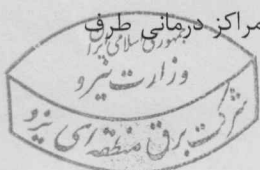 مراکز درمانی طرف
جمهوری اسلامی ایران
وزارت نیرو
شرکت برق منطقه ای یزد